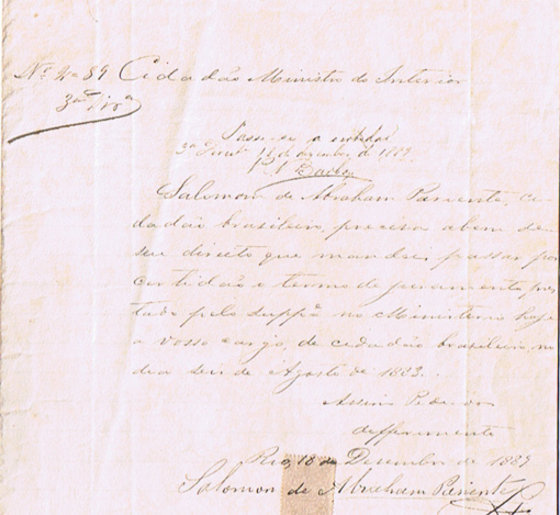 Nº 4=89 Cidadão Ministro do Interior
3ª
Passe-se a certidão
3ª Direct. de Dezembro de 1889
Salomon de Abraham Pariente, ci-
dadão brasileiro, precisa a bem de
seu direito que mandeis passar por
certidão o termo de juramento pres-
tado pelo suppe. no Ministerio hoje
a vosso cargo, de cidadão brasileiro, no
dia seis de Agosto de 1883.
Assim Pede vos
defferimento
Rio, 18 de Desembro de 1889
Salomon de Abraham Pariente